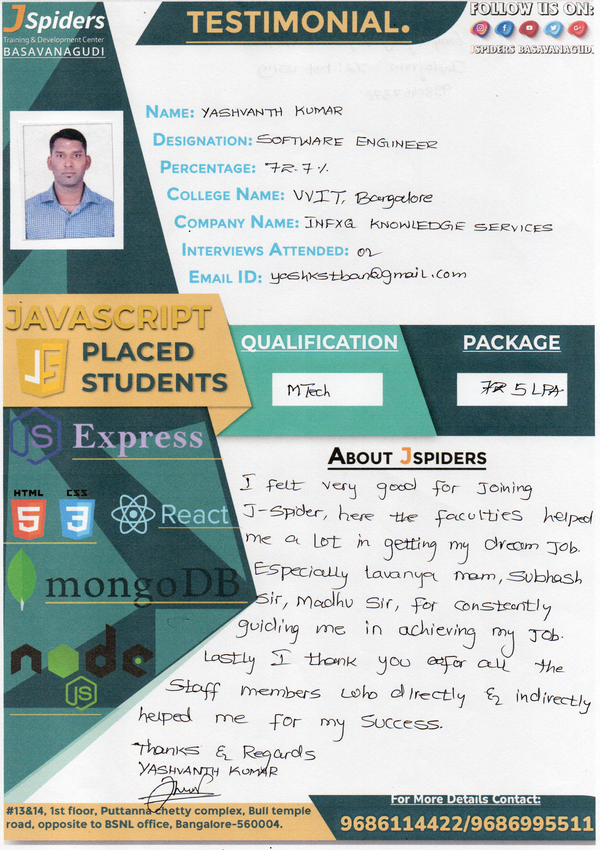 JSpiders
Training & Development Center
BASAVANAGUDI
TESTIMONIAL.
FOLLOW US ON:
JSPIDERS BASAVANAGUDI
NAME: YASHVANTH KUMAR
DESIGNATION: SOFTWARE ENGINEER
PERCENTAGE: 72.7 %
COLLEGE NAME: VVIT, Bangalore
COMPANY NAME: INFXQ KNOWLEDGE SERVICES
INTERVIEWS ATTENDED: 02
EMAIL ID: yashkstban@gmail.com
JAVASCRIPT
JS
PLACED
STUDENTS
QUALIFICATION
MTech
PACKAGE
5 LPA
JS Express
HTML
5
CSS
3
React
mongoDB
node
JS
ABOUT JSPIDERS
I felt very good for Joining
J-Spider, here the faculties helped
me a lot in getting my dream Job.
Especially lavanya mam, Subhash
Sir, Madhu Sir, for constantly
guiding me in achieving my Job.
Lastly I thank you for all the
Staff members who directly & indirectly
helped me for my Success.
Thanks & Regards
YASHVANTH KUMAR
#13&14, 1st floor, Puttanna chetty complex, Bull temple
road, opposite to BSNL office, Bangalore-560004.
For More Details Contact:
9686114422/9686995511